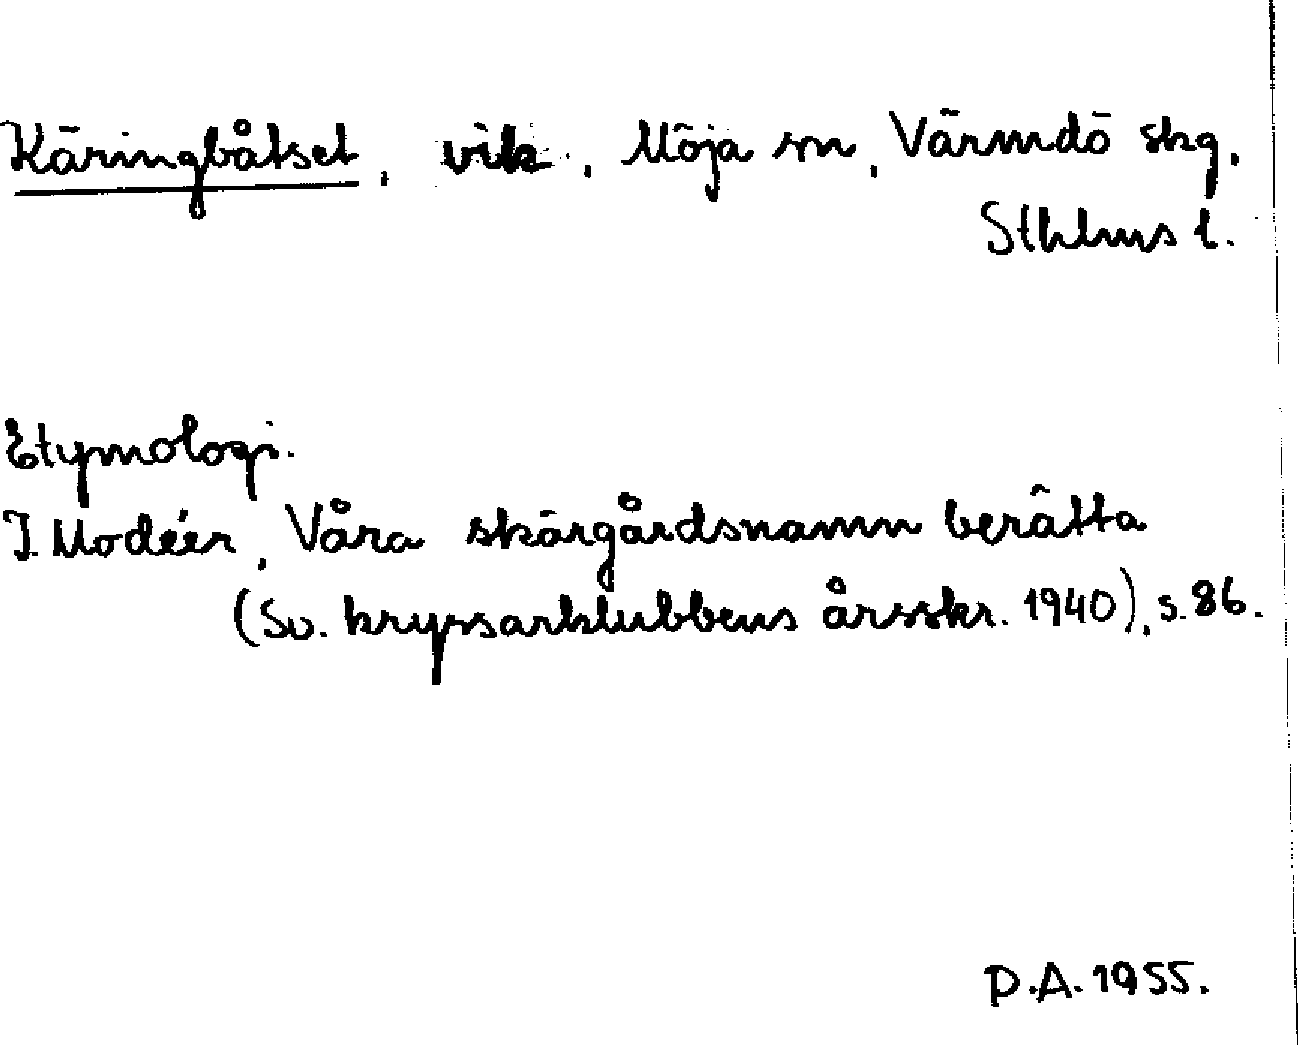 Käringbåtset, vik, Möja sn, Värmdö skg,
Sthlms l.
Etymologi.
I. Modéer, Våra skärgårdsnamn berätta
(Sv. kryssarklubbens årsskr. 1940), s. 86.
D.A. 1955.